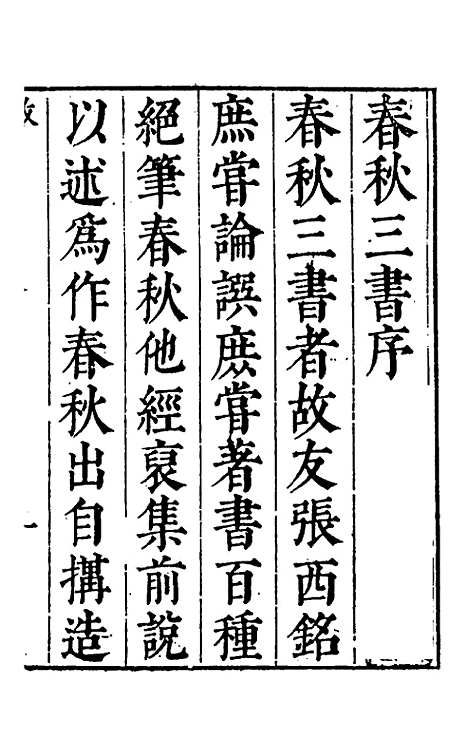 春秋三書序
春秋三書者故友張西銘
庶嘗論譔庶嘗著書百種
絕筆春秋他經裒集前說
以述爲作春秋出自搆造